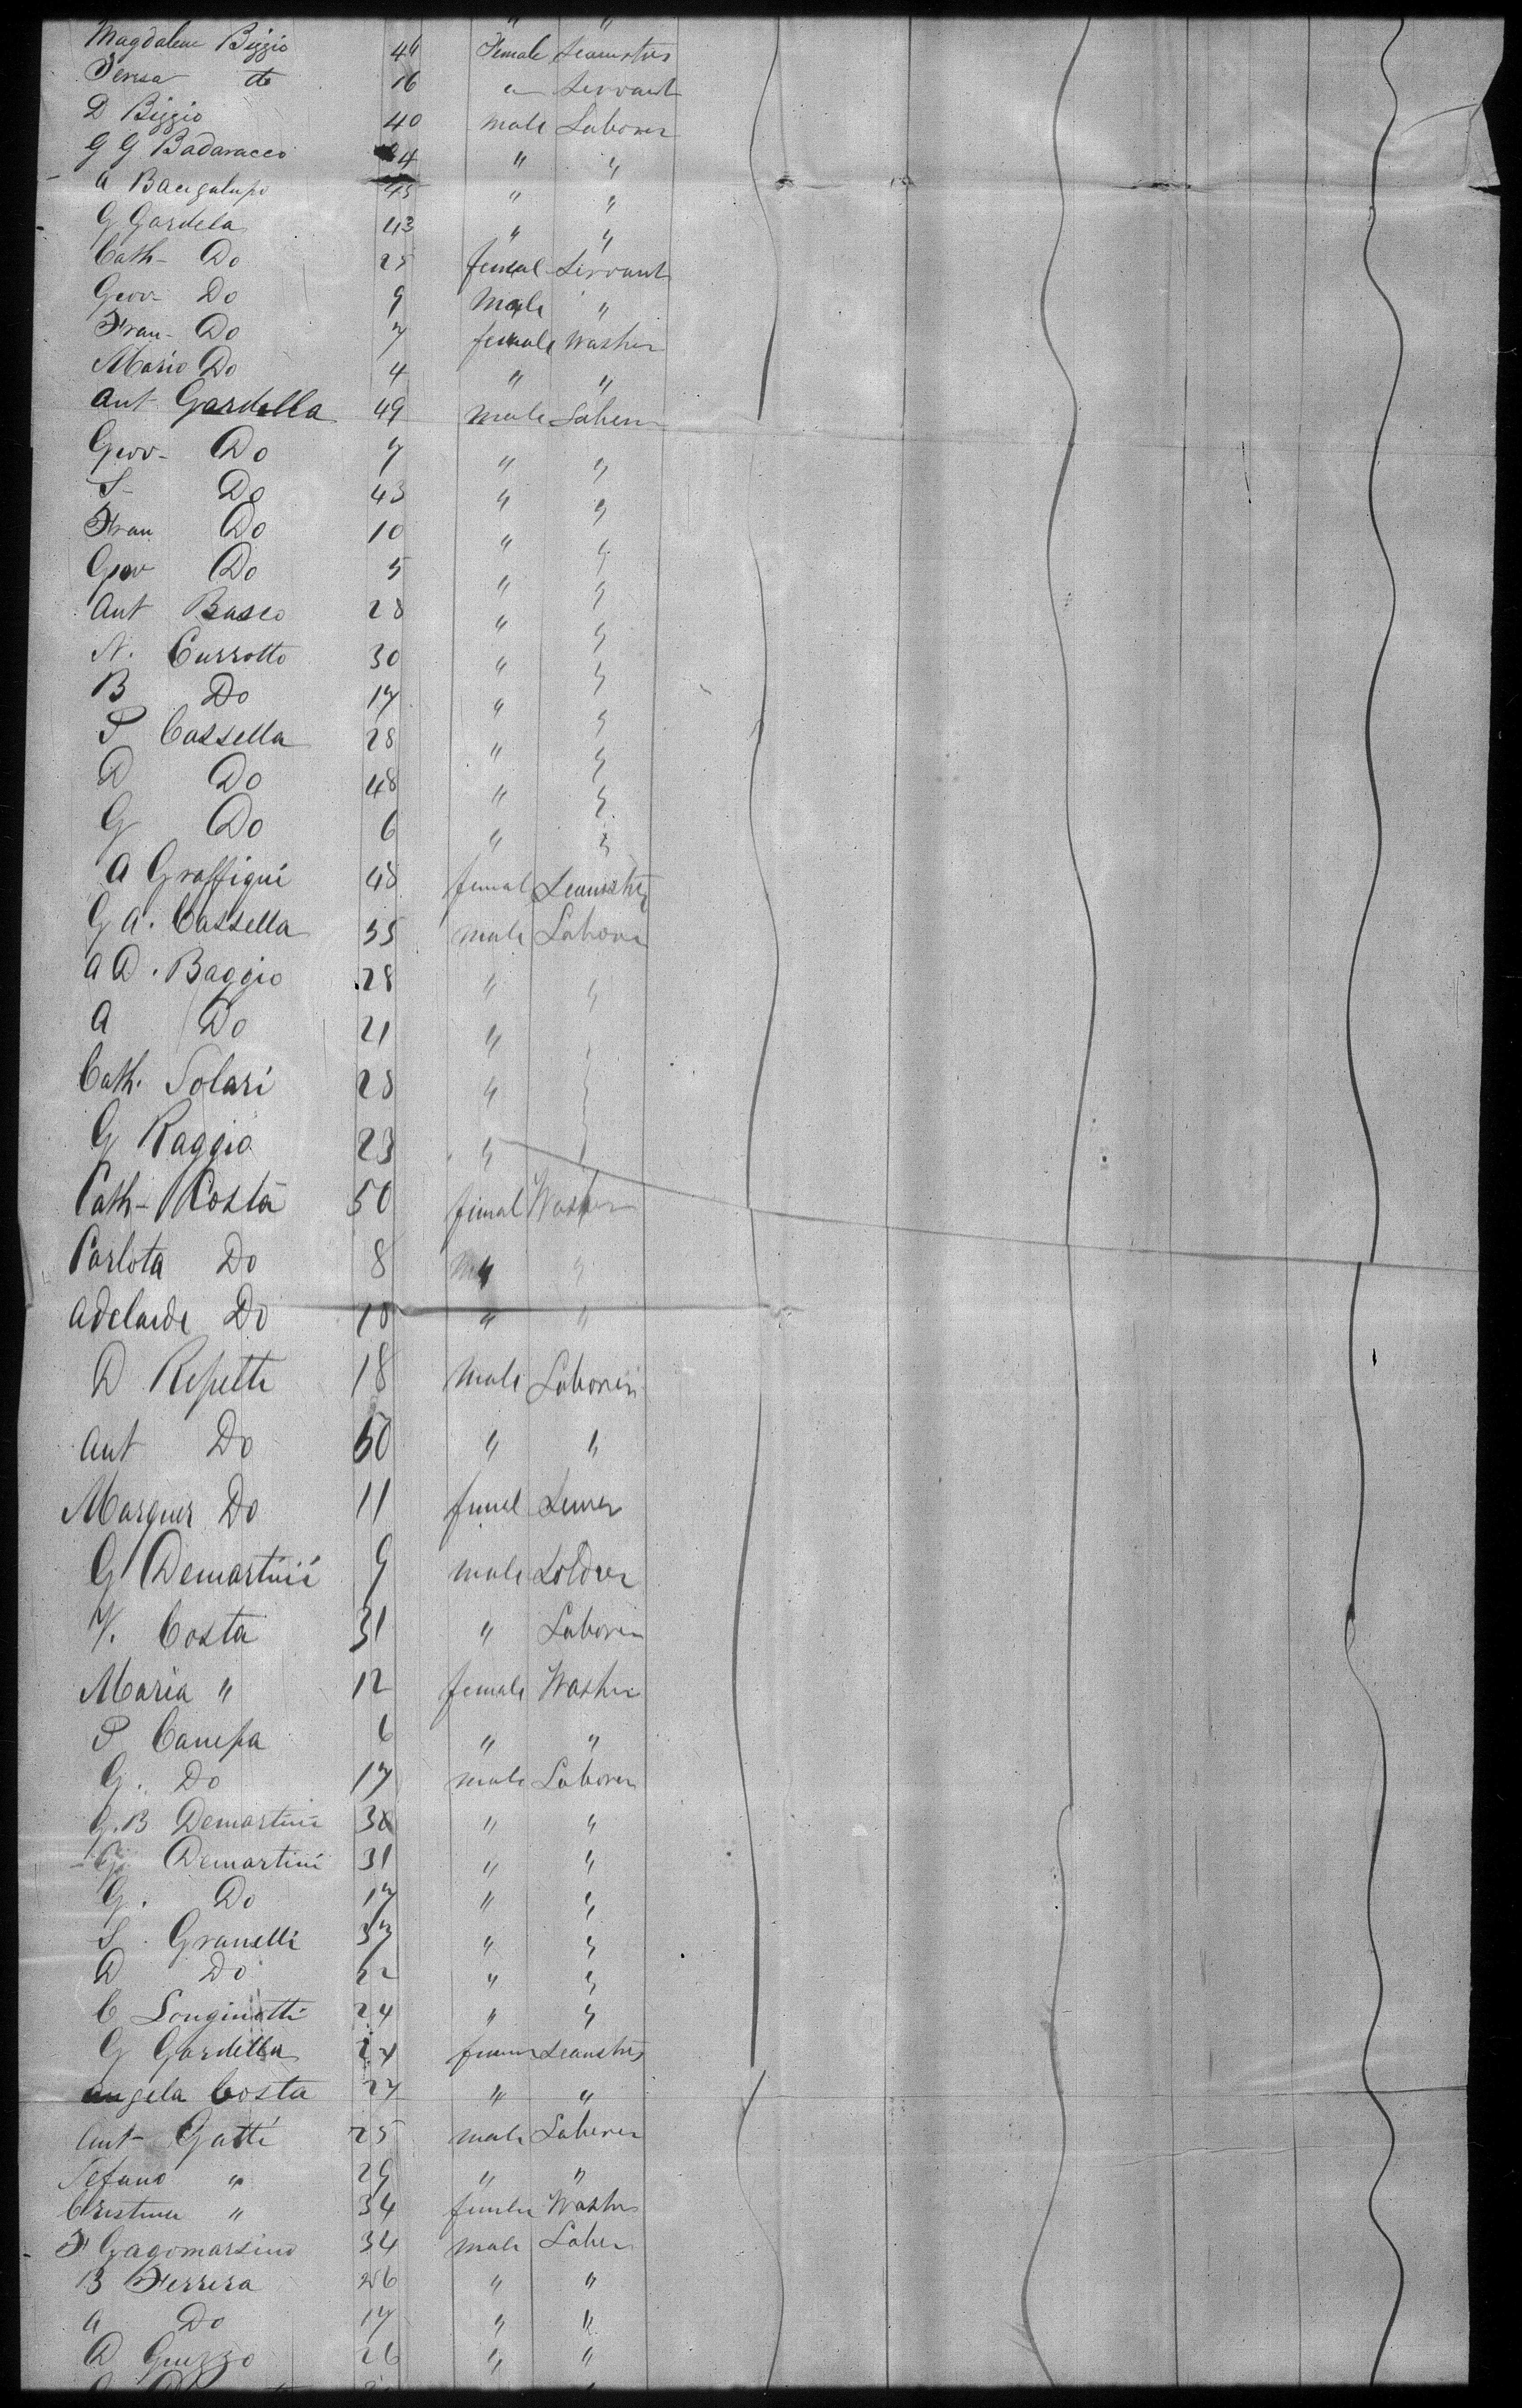 Magdalene Biggio 44 Female Seamstres
Teresa do 16 " Servant
D Biggio 40 male Laborer
G G Badaracco 34 " "
A Bacigalupo 45 " "
G Gardela 43 " "
Cath- Do 25 femal Servant
Giov- Do 9 Male "
Fran- Do 7 female Washer
Maria Do 4 " "
Ant Gardella 49 male Laberer
Giov- Do 7 " "
S- Do 43 " "
Fran Do 10 " "
Giov Do 5 " "
Ant Basco 28 " "
N. Currotto 30 " "
B Do 17 " "
P Cassella 28 " "
D Do 48 " "
G Do 6 " "
A Graffigni 48 femal Seamstres
G A. Cassella 35 male Laborer
A D. Baggio 28 " "
A Do 21 " "
Cath. Solari 28 " "
G Raggio 23 " "
Cath- Costa 50 femal Washer
Carlota Do 8 " "
Adelaide Do 10 " "
D Repetti 18 Male Laborer
Ant Do 50 " "
Marguer Do 11 femel Sewer
G Demartini 9 male Soldier
V. Costa 31 " Laborer
Maria " 12 female Washer
P Canepa 6 " "
G. Do 17 male Laborer
G.B Demartini 38 " "
G Demartini 31 " "
G. Do 17 " "
S. Granelli 37 " "
D Do 22 " "
C Longinotti 24 " "
G Gardella 24 Seamstres
Angela Costa 27 " "
Ant- Gatti 25 male Laberer
Stefano " 29 " "
Cristina " 34 Washer
F Gagomarsino 34 male Laber
B Ferrera 26 " "
A Do 17 " "
D Guzzo 26 " "